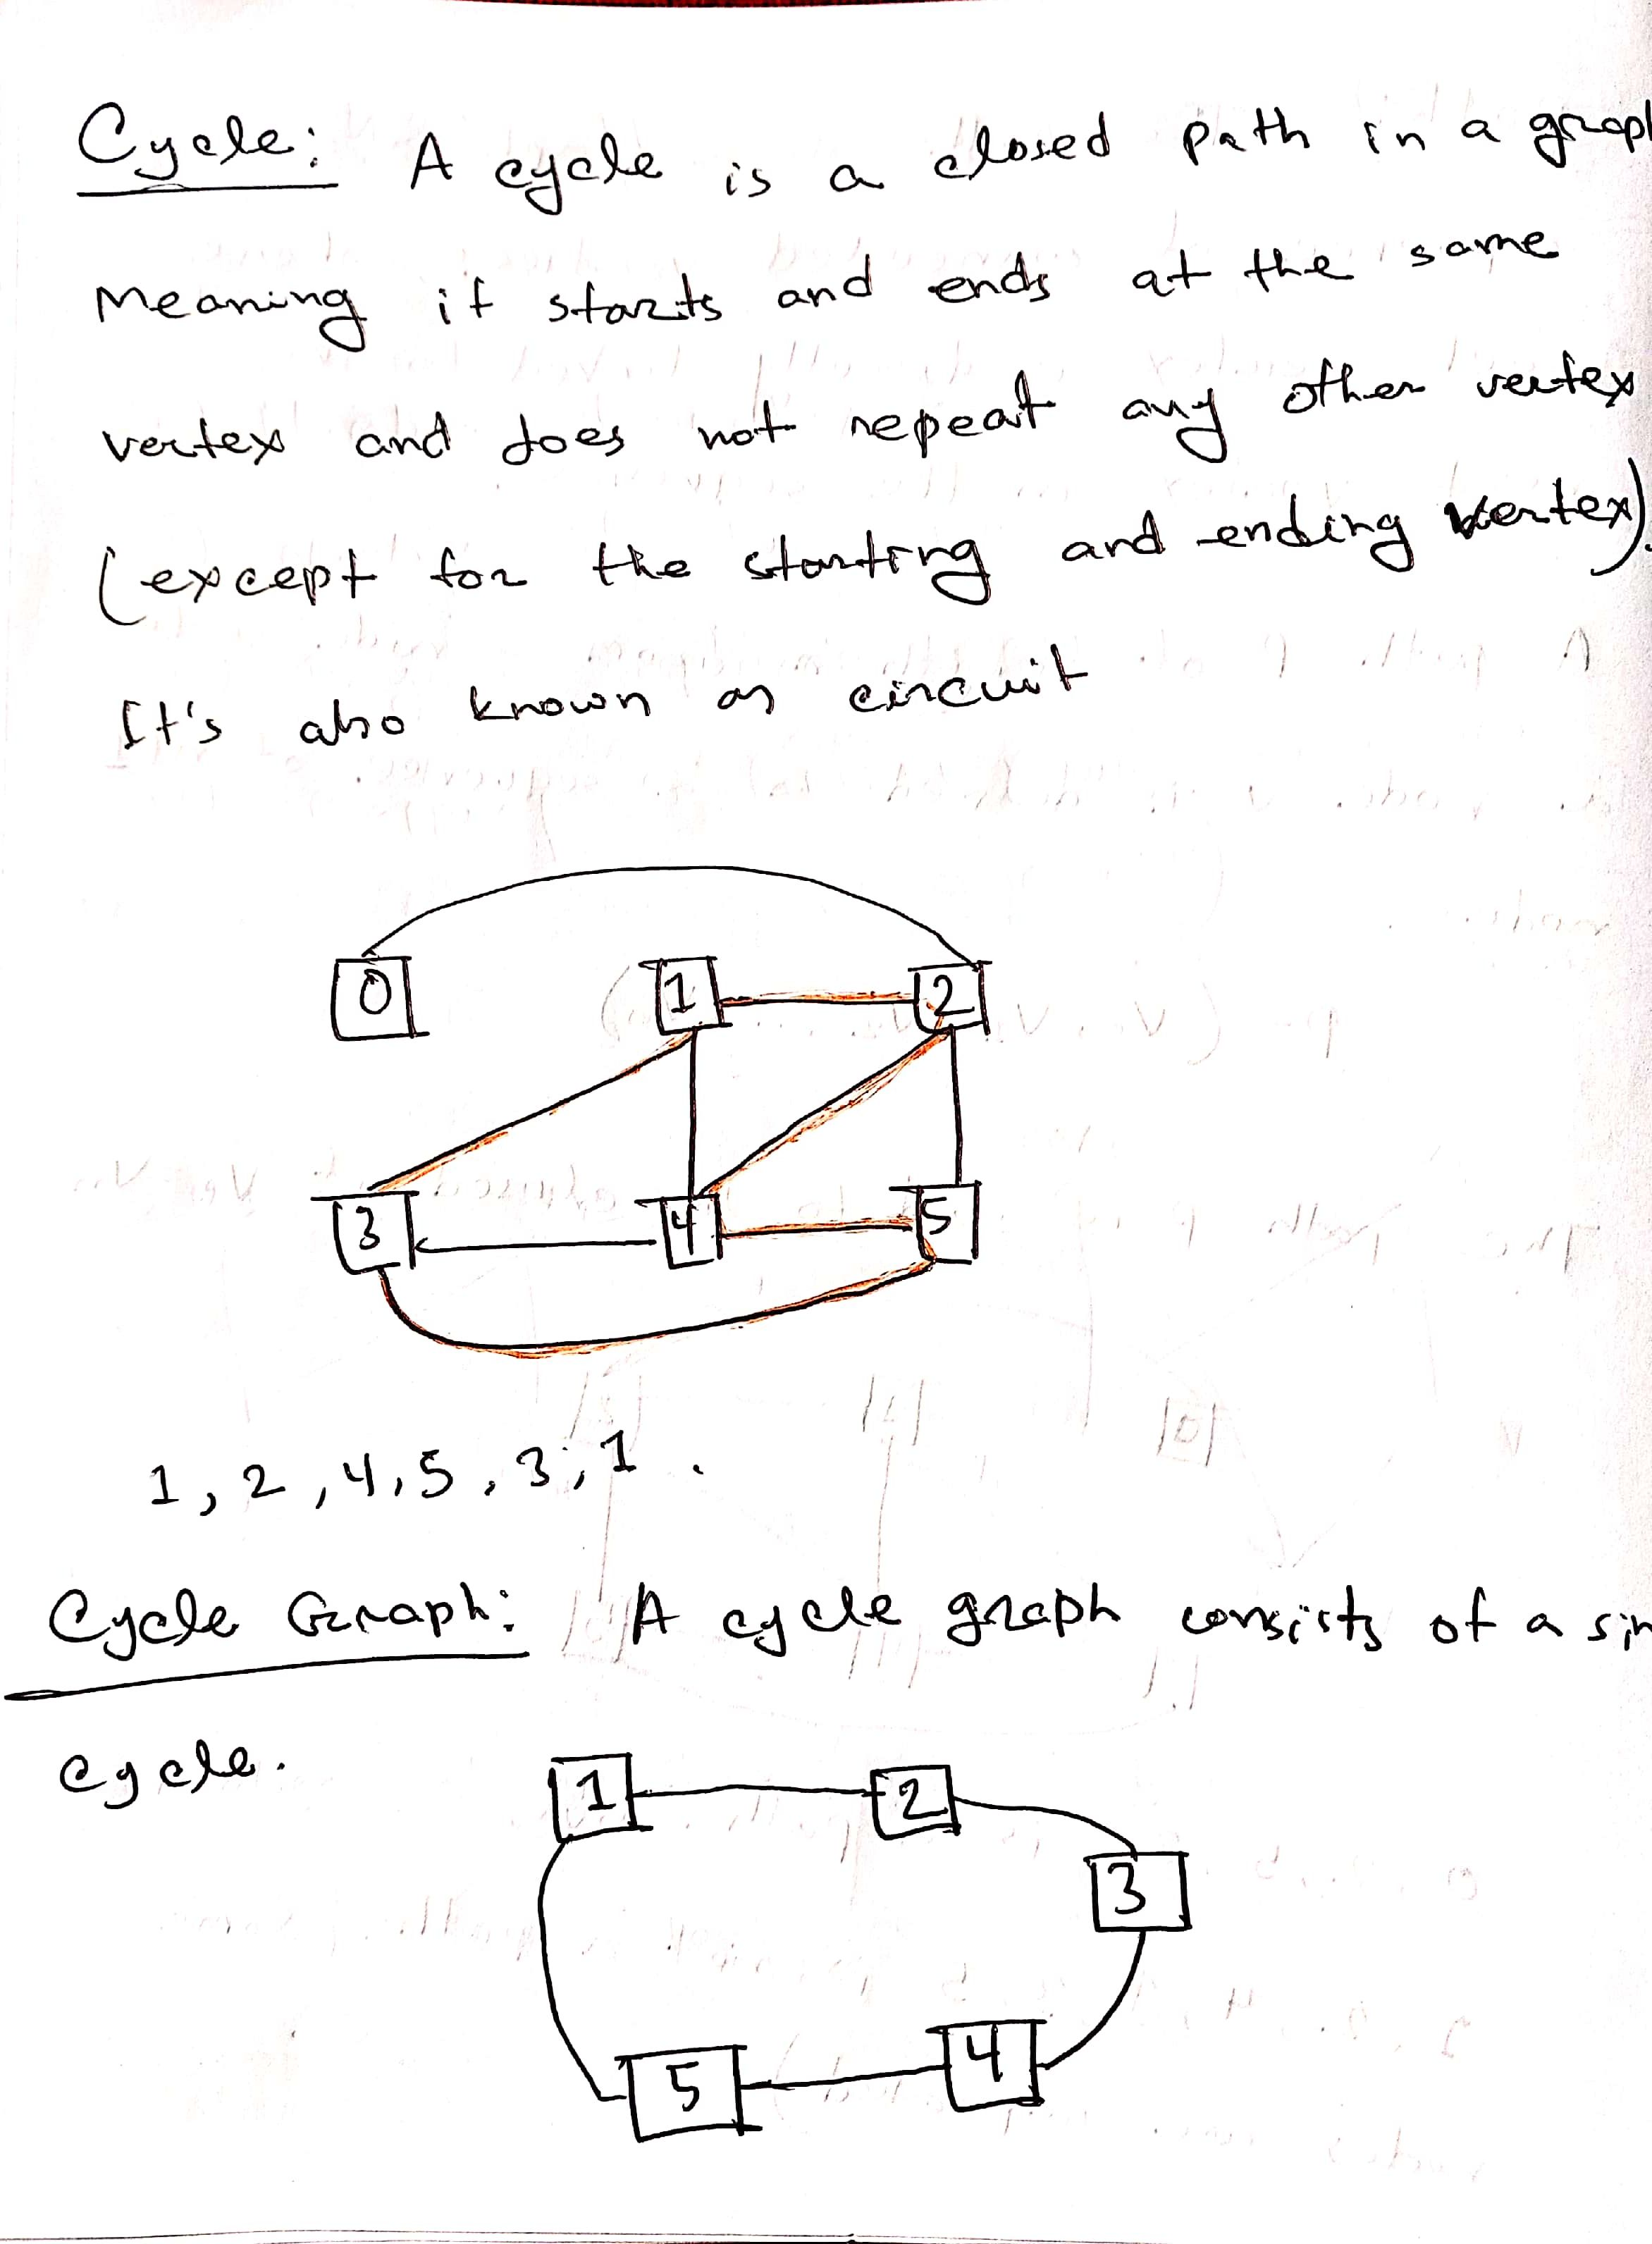 Cycle: A cycle is a closed path in a graph
Meaning it starts and ends at the same
vertex and does not repeat any other vertex
(except for the starting and ending vertex).
It's also known as circuit
0 1 2
3 4 5
1, 2, 4, 5, 3, 1.
Cycle Graph: A cycle graph consists of a sin
cycle.
1 2
3
4
5